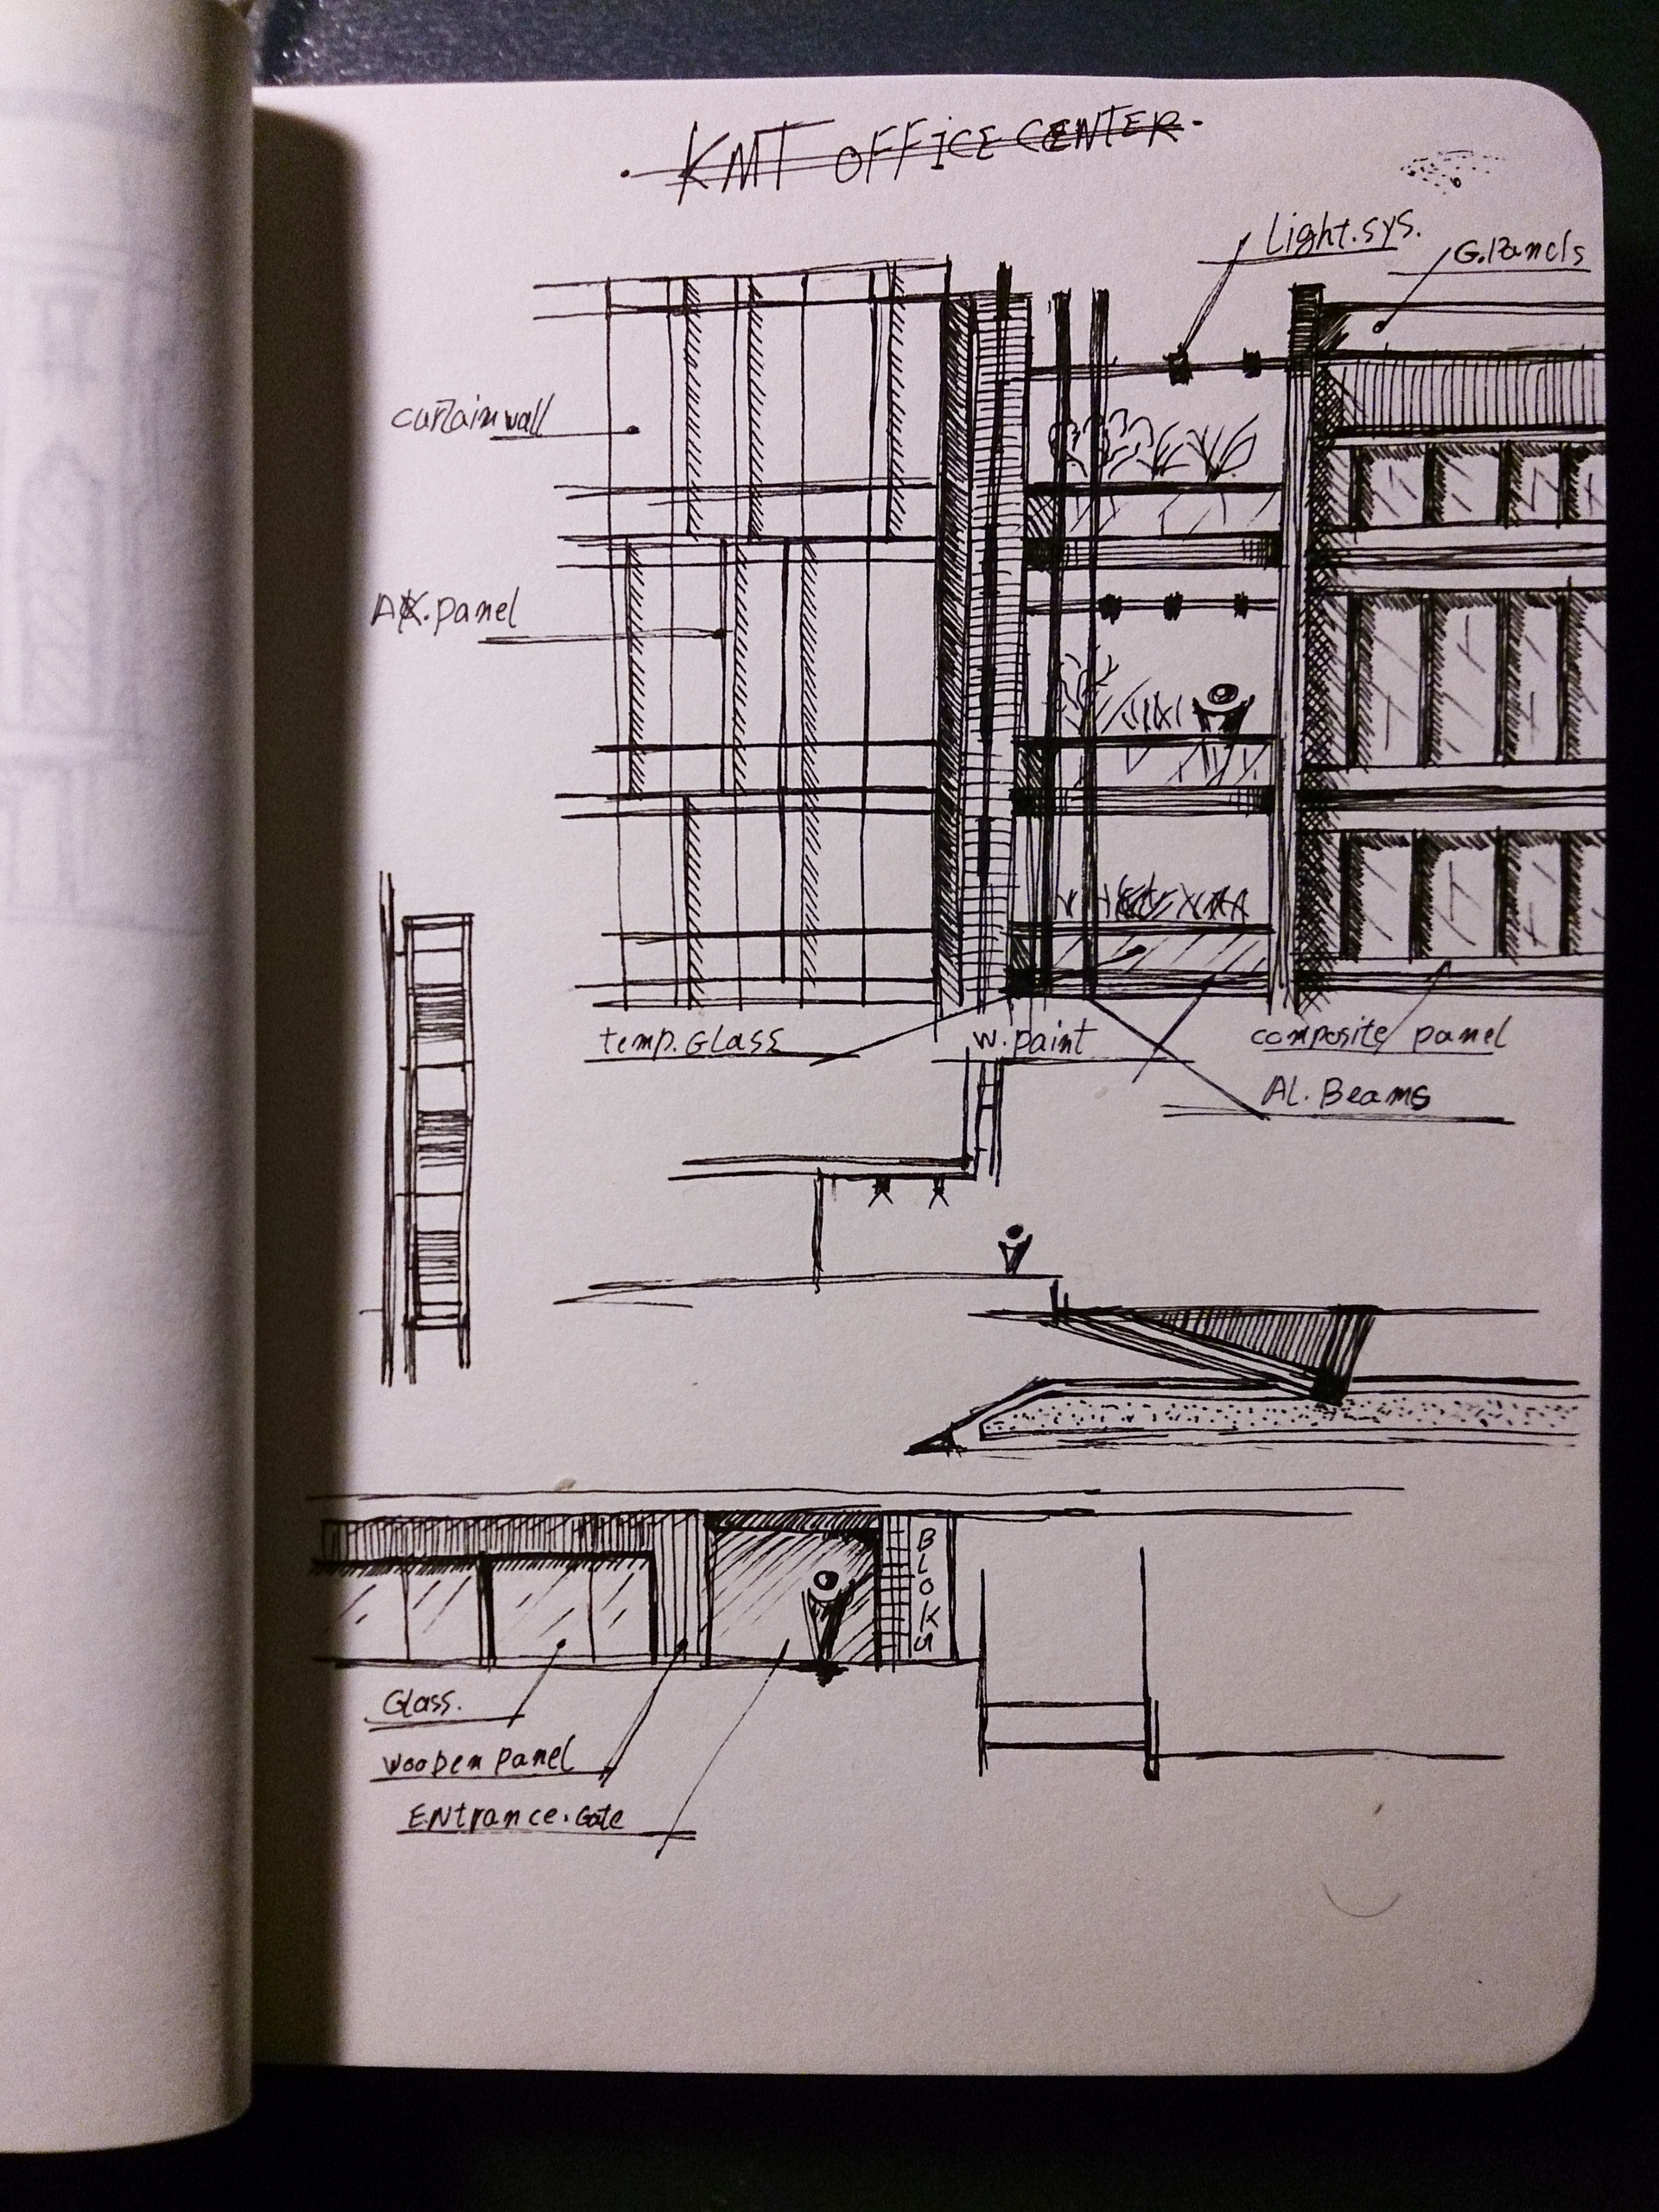 KMT OFFICE CENTER
Light.sys.
G.Panels
curtain wall
panel
temp.Glass
w.paint
composite panel
AL. Beams
BLOKS
Glass.
wooden panel
ENtrance.Gate